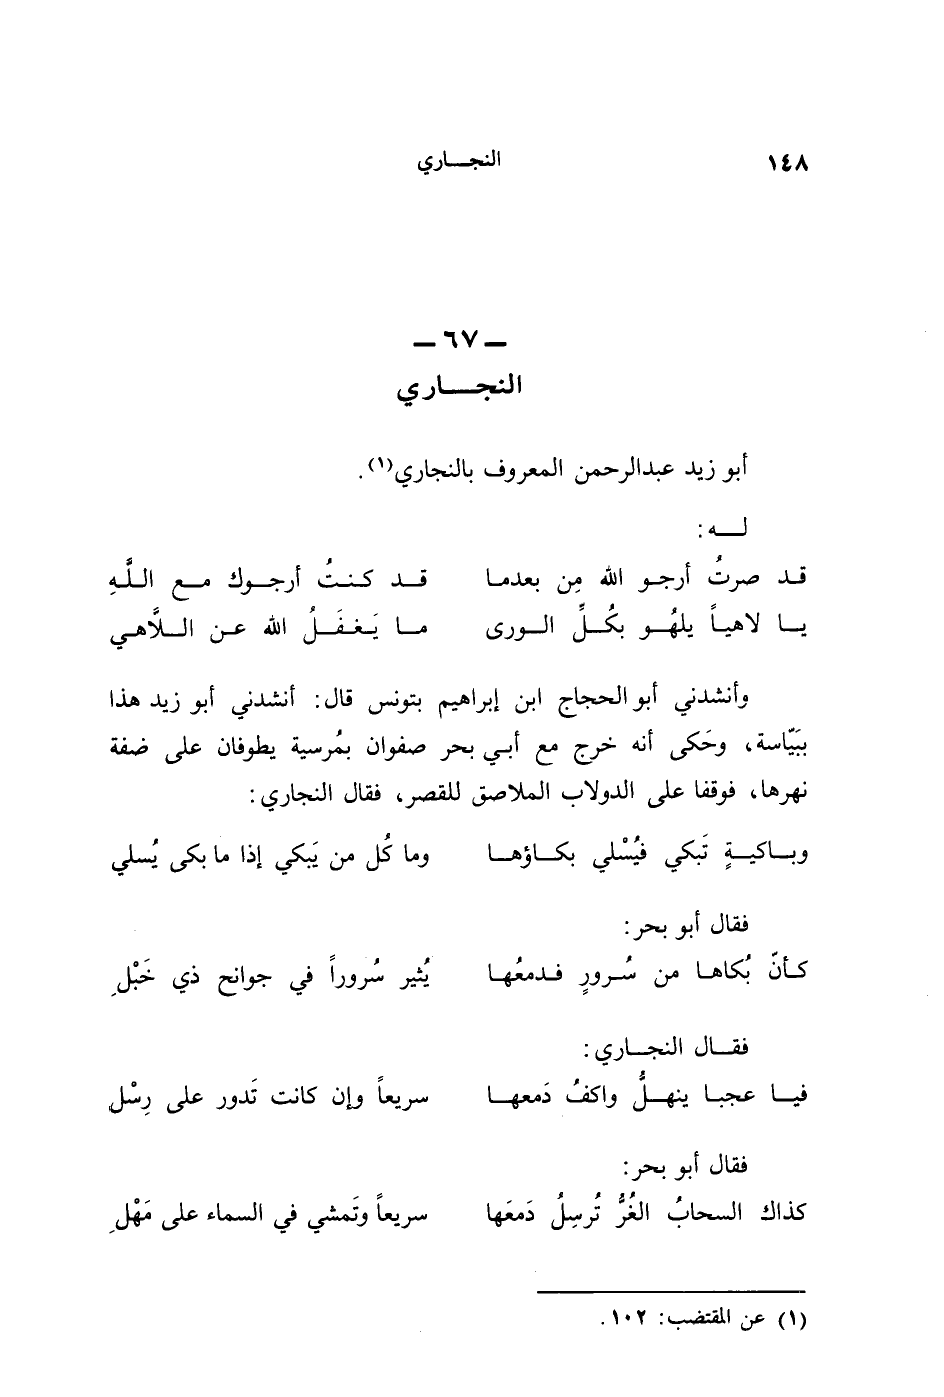 ١٤٨ النجاري
— ٦٧ —
النجاري
أبو زيد عبدالرحمن المعروف بالنجاري(١).
له:
قد صرتُ أرجو الله مِن بعدما قد كنتُ أرجوك مع اللَّهِ
يا لاهياً يلهُو بكُلِّ الورى ما يَغفَلُ الله عن اللَّاهي
وأنشدني أبو الحجاج ابن إبراهيم بتونس قال: أنشدني أبو زيد هذا
ببَيّاسة، وحَكى أنه خرج مع أبي بحر صفوان بمُرسية يطوفان على ضفة
نهرها، فوقفا على الدولاب الملاصق للقصر، فقال النجاري:
وباكيةٍ تَبكي فيُسْلي بكاؤها وما كُل من يَبكي إذا ما بكى يُسلي
فقال أبو بحر:
كأنّ بُكاها من سُرورٍ فدمعُها يُثير سُروراً في جوانح ذي خَبْلِ
فقال النجاري:
فيا عجبا ينهلُّ واكفُ دَمعها سريعاً وإن كانت تَدور على رِسْلِ
فقال أبو بحر:
كذاك السحابُ الغُرُّ تُرسِلُ دَمعَها سريعاً وتَمشي في السماء على مَهْلِ
(١) عن المقتضب: ١٠٢.